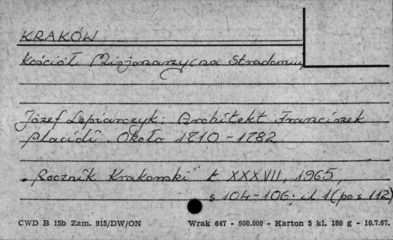 KRAKÓW
Kościół Misjonarzy na Stradomiu
Józef Lepiarczyk: Architekt Franciszek
Placidi. Około 1710-1782
"Rocznik Krakowski" t. XXXVII, 1965,
s 104-106; il. 1 (po s 112)
CWD B 15b Zam. 915/DW/ON Wrak 647 - 980.000 - Karton 3 kl. 180 g - 10.7.67.